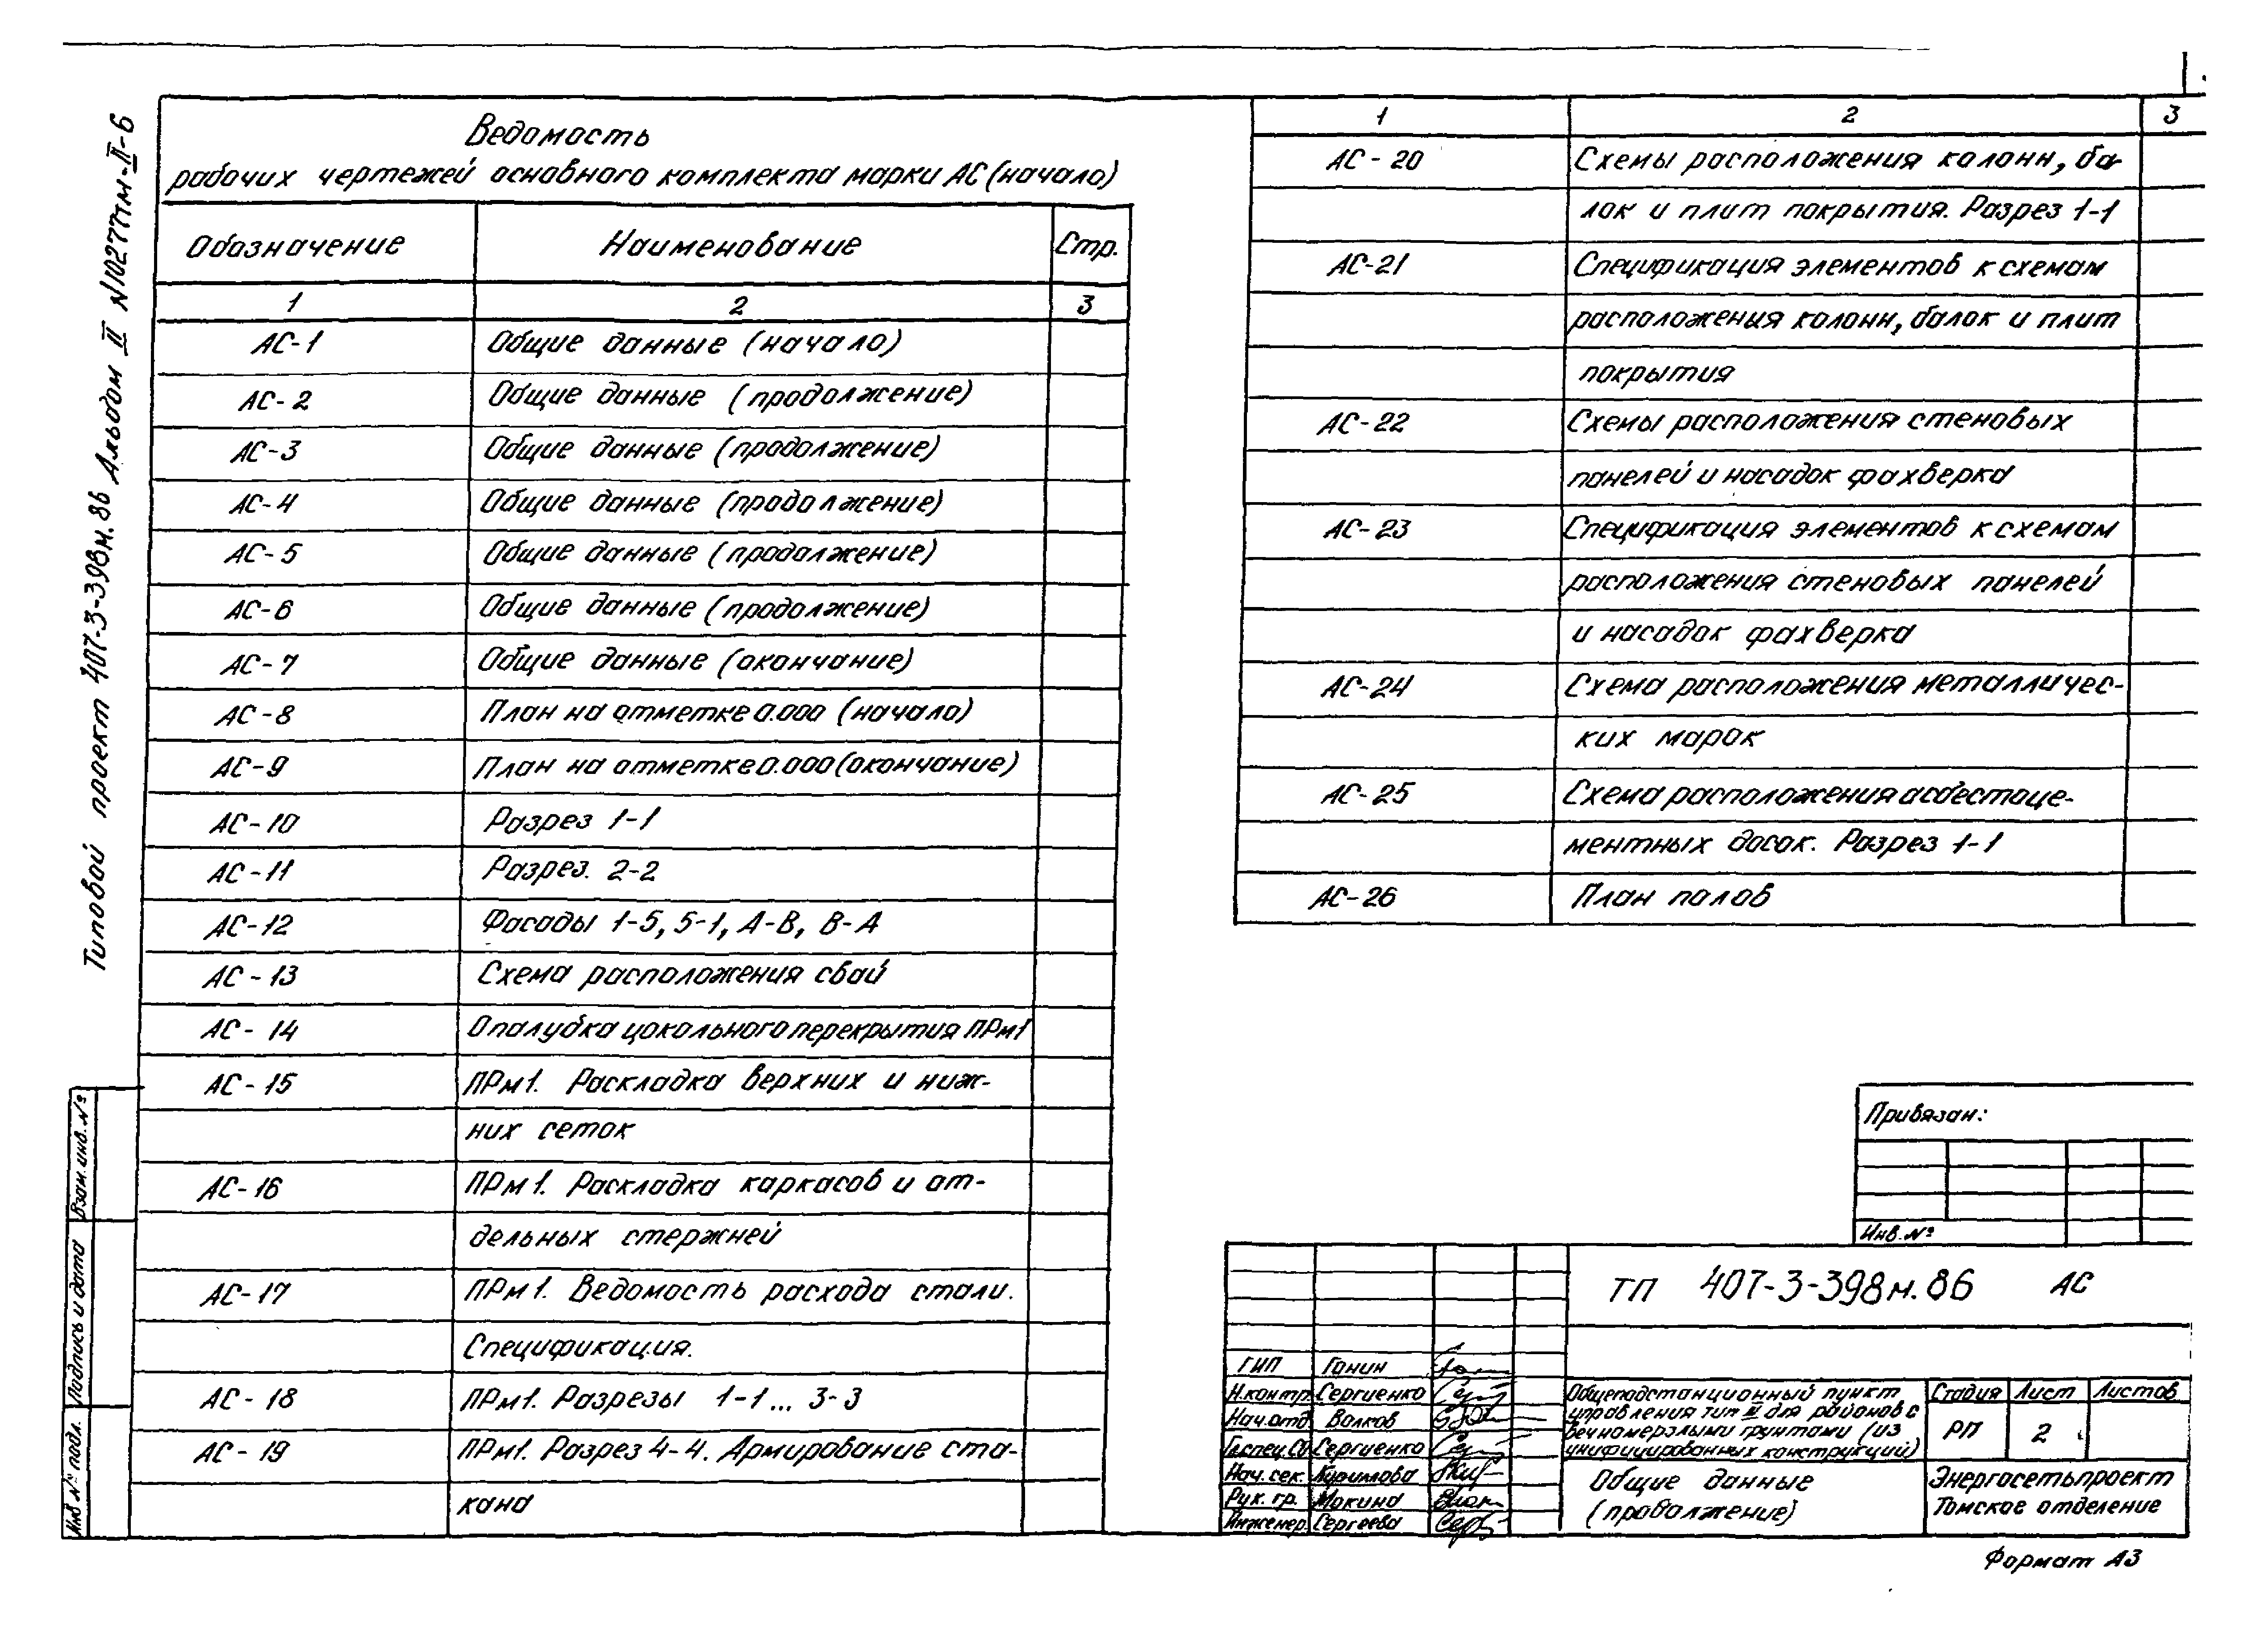 Типовой проект 407-3-398м.86 Альбом II N10277тм-II-6
Ведомость
рабочих чертежей основного комплекта марки АС (начало)
Обозначение Наименование Стр.
1 2 3
АС-1 Общие данные (начало)
АС-2 Общие данные (продолжение)
АС-3 Общие данные (продолжение)
АС-4 Общие данные (продолжение)
АС-5 Общие данные (продолжение)
АС-6 Общие данные (продолжение)
АС-7 Общие данные (окончание)
АС-8 План на отметке 0.000 (начало)
АС-9 План на отметке 0.000 (окончание)
АС-10 Разрез 1-1
АС-11 Разрез. 2-2
АС-12 Фасады 1-5, 5-1, А-В, В-А
АС-13 Схема расположения свай
АС-14 Опалубка цокольного перекрытия ПРм1
АС-15 ПРм1. Раскладка верхних и ниж-
них сеток
АС-16 ПРм1. Раскладка каркасов и от-
дельных стержней
АС-17 ПРм1. Ведомость расхода стали.
Спецификация.
АС-18 ПРм1. Разрезы 1-1... 3-3
АС-19 ПРм1. Разрез 4-4. Армирование ста-
кана
1 2 3
АС-20 Схемы расположения колонн, ба-
лок и плит покрытия. Разрез 1-1
АС-21 Спецификация элементов к схемам
расположения колонн, балок и плит
покрытия
АС-22 Схемы расположения стеновых
панелей и насадок фахверка
АС-23 Спецификация элементов к схемам
расположения стеновых панелей
и насадок фахверка
АС-24 Схема расположения металличес-
ких марок
АС-25 Схема расположения асбестоце-
ментных досок. Разрез 1-1
АС-26 План полов
Привязан:
Инв. №
ТП 407-3-398м.86 АС
ГИП Ганин
Н.контр. Сергиенко
Нач.отд. Волков
Гл.спец.СО Сергиенко
Нач. сек.
Рук. гр. Мокина
Инженер. Сергеева
Общеподстанционный пункт
управления тип III для районов с
вечномерзлыми грунтами (из
унифицированных конструкций)
Стадия Лист Листов
РП 2
Общие данные
(продолжение)
Энергосетьпроект
Томское отделение
Формат А3
Взам. инв. №
Подпись и дата
Инв № подл.